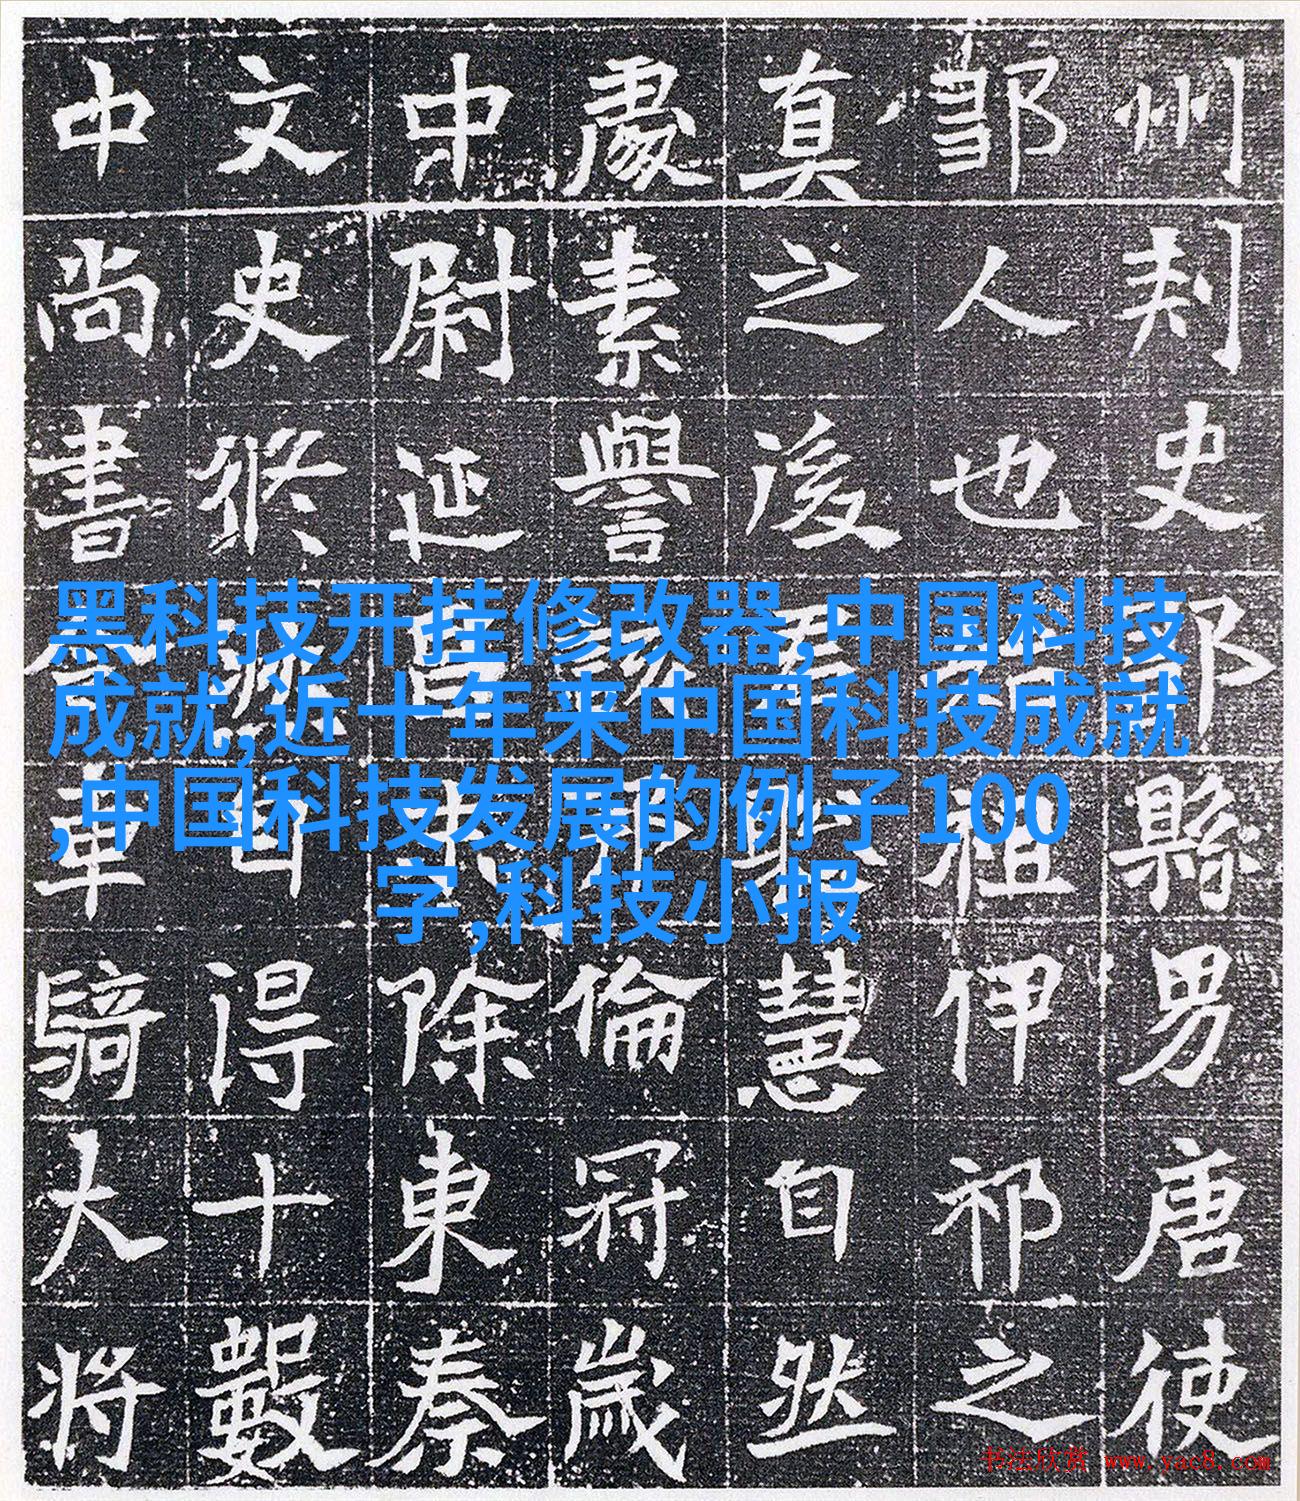 黑科技开挂修改器,中国科技
成就,近十年来中国科技成就
,中国科技发展的例子100
字,科技小报
州刾史縣男唐使
鄒人也祖伊祁之
真之後慧自然
處素譽倫冠歲
中尉延昌除東秦
文史脩得十數
中尚書令車騎大將
书法欣赏 www.yac8.com